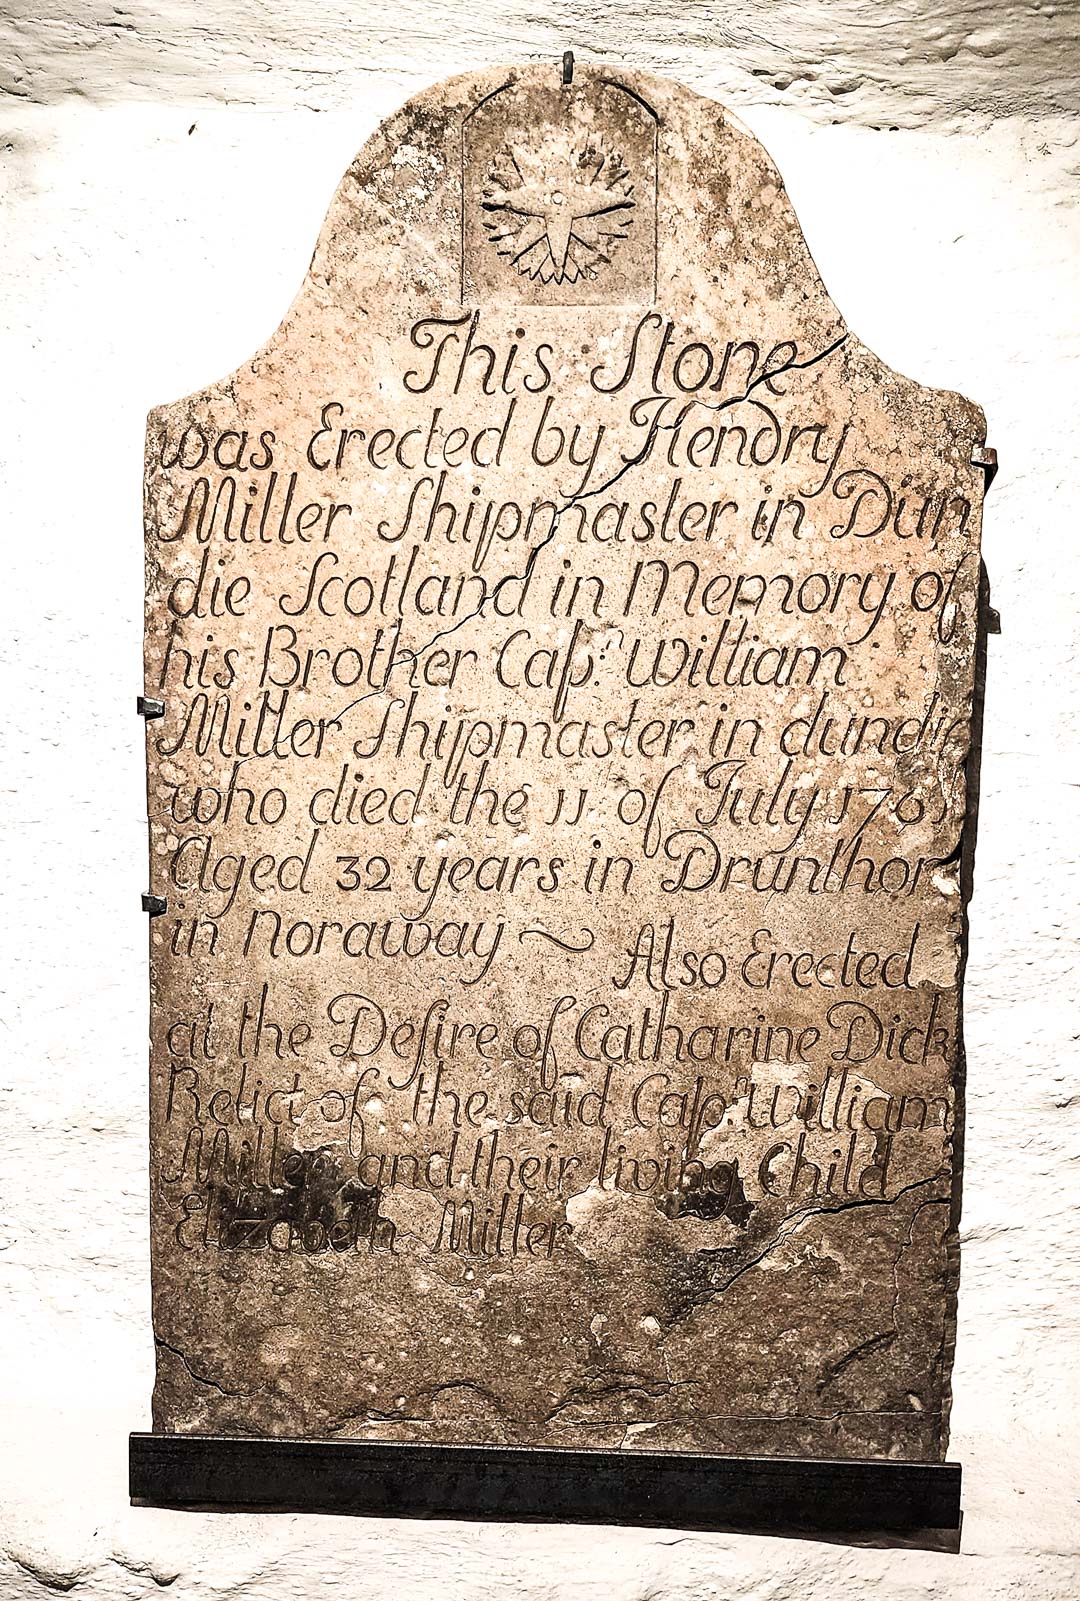 This Stone
was Erected by Hendry
Miller Shipmaster in Dun
die Scotland in Memory of
his Brother Cap:t William
Miller Shipmaster in dundie
who died the 11 of July 176
Aged 32 years in Drunthon
in Noraway ~ Also Erected
at the Desire of Catharine Dick
Relict of the said Cap:t William
Miller and their living Child
Elizabeth Miller